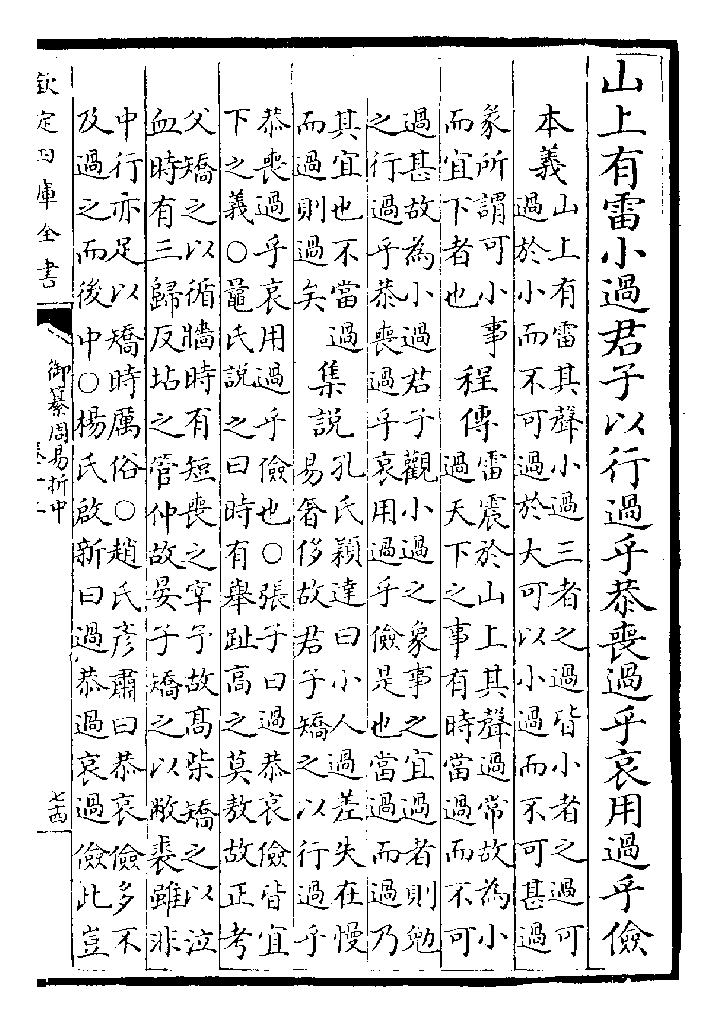 山上有雷小過君子以行過乎恭喪過乎哀用過乎儉
本義
山上有雷其聲小過三者之過皆小者之過可
過於小而不可過於大可以小過而不可甚過
彖所謂可小事
而宜下者也
程傳
雷震於山上其聲過常故為小
過天下之事有時當過而不可
過甚故為小過君子觀小過之象事之宜過者則勉
之行過乎恭喪過乎哀用過乎儉是也當過而過乃
其宜也不當過
而過則過矣
集說
孔氏穎達曰小人過差失在慢
易奢侈故君子矯之以行過乎
恭喪過乎哀用過乎儉也○張子曰過恭哀儉皆宜
下之義○鼂氏說之曰時有舉趾高之莫敖故正考
父矯之以循牆時有短喪之宰予故高柴矯之以泣
血時有三歸反坫之管仲故晏子矯之以敝裘雖非
中行亦足以矯時厲俗○趙氏彥肅曰恭哀儉多不
及過之而後中○楊氏啟新曰過恭過哀過儉此豈
欽定四庫全書
御纂周易折中